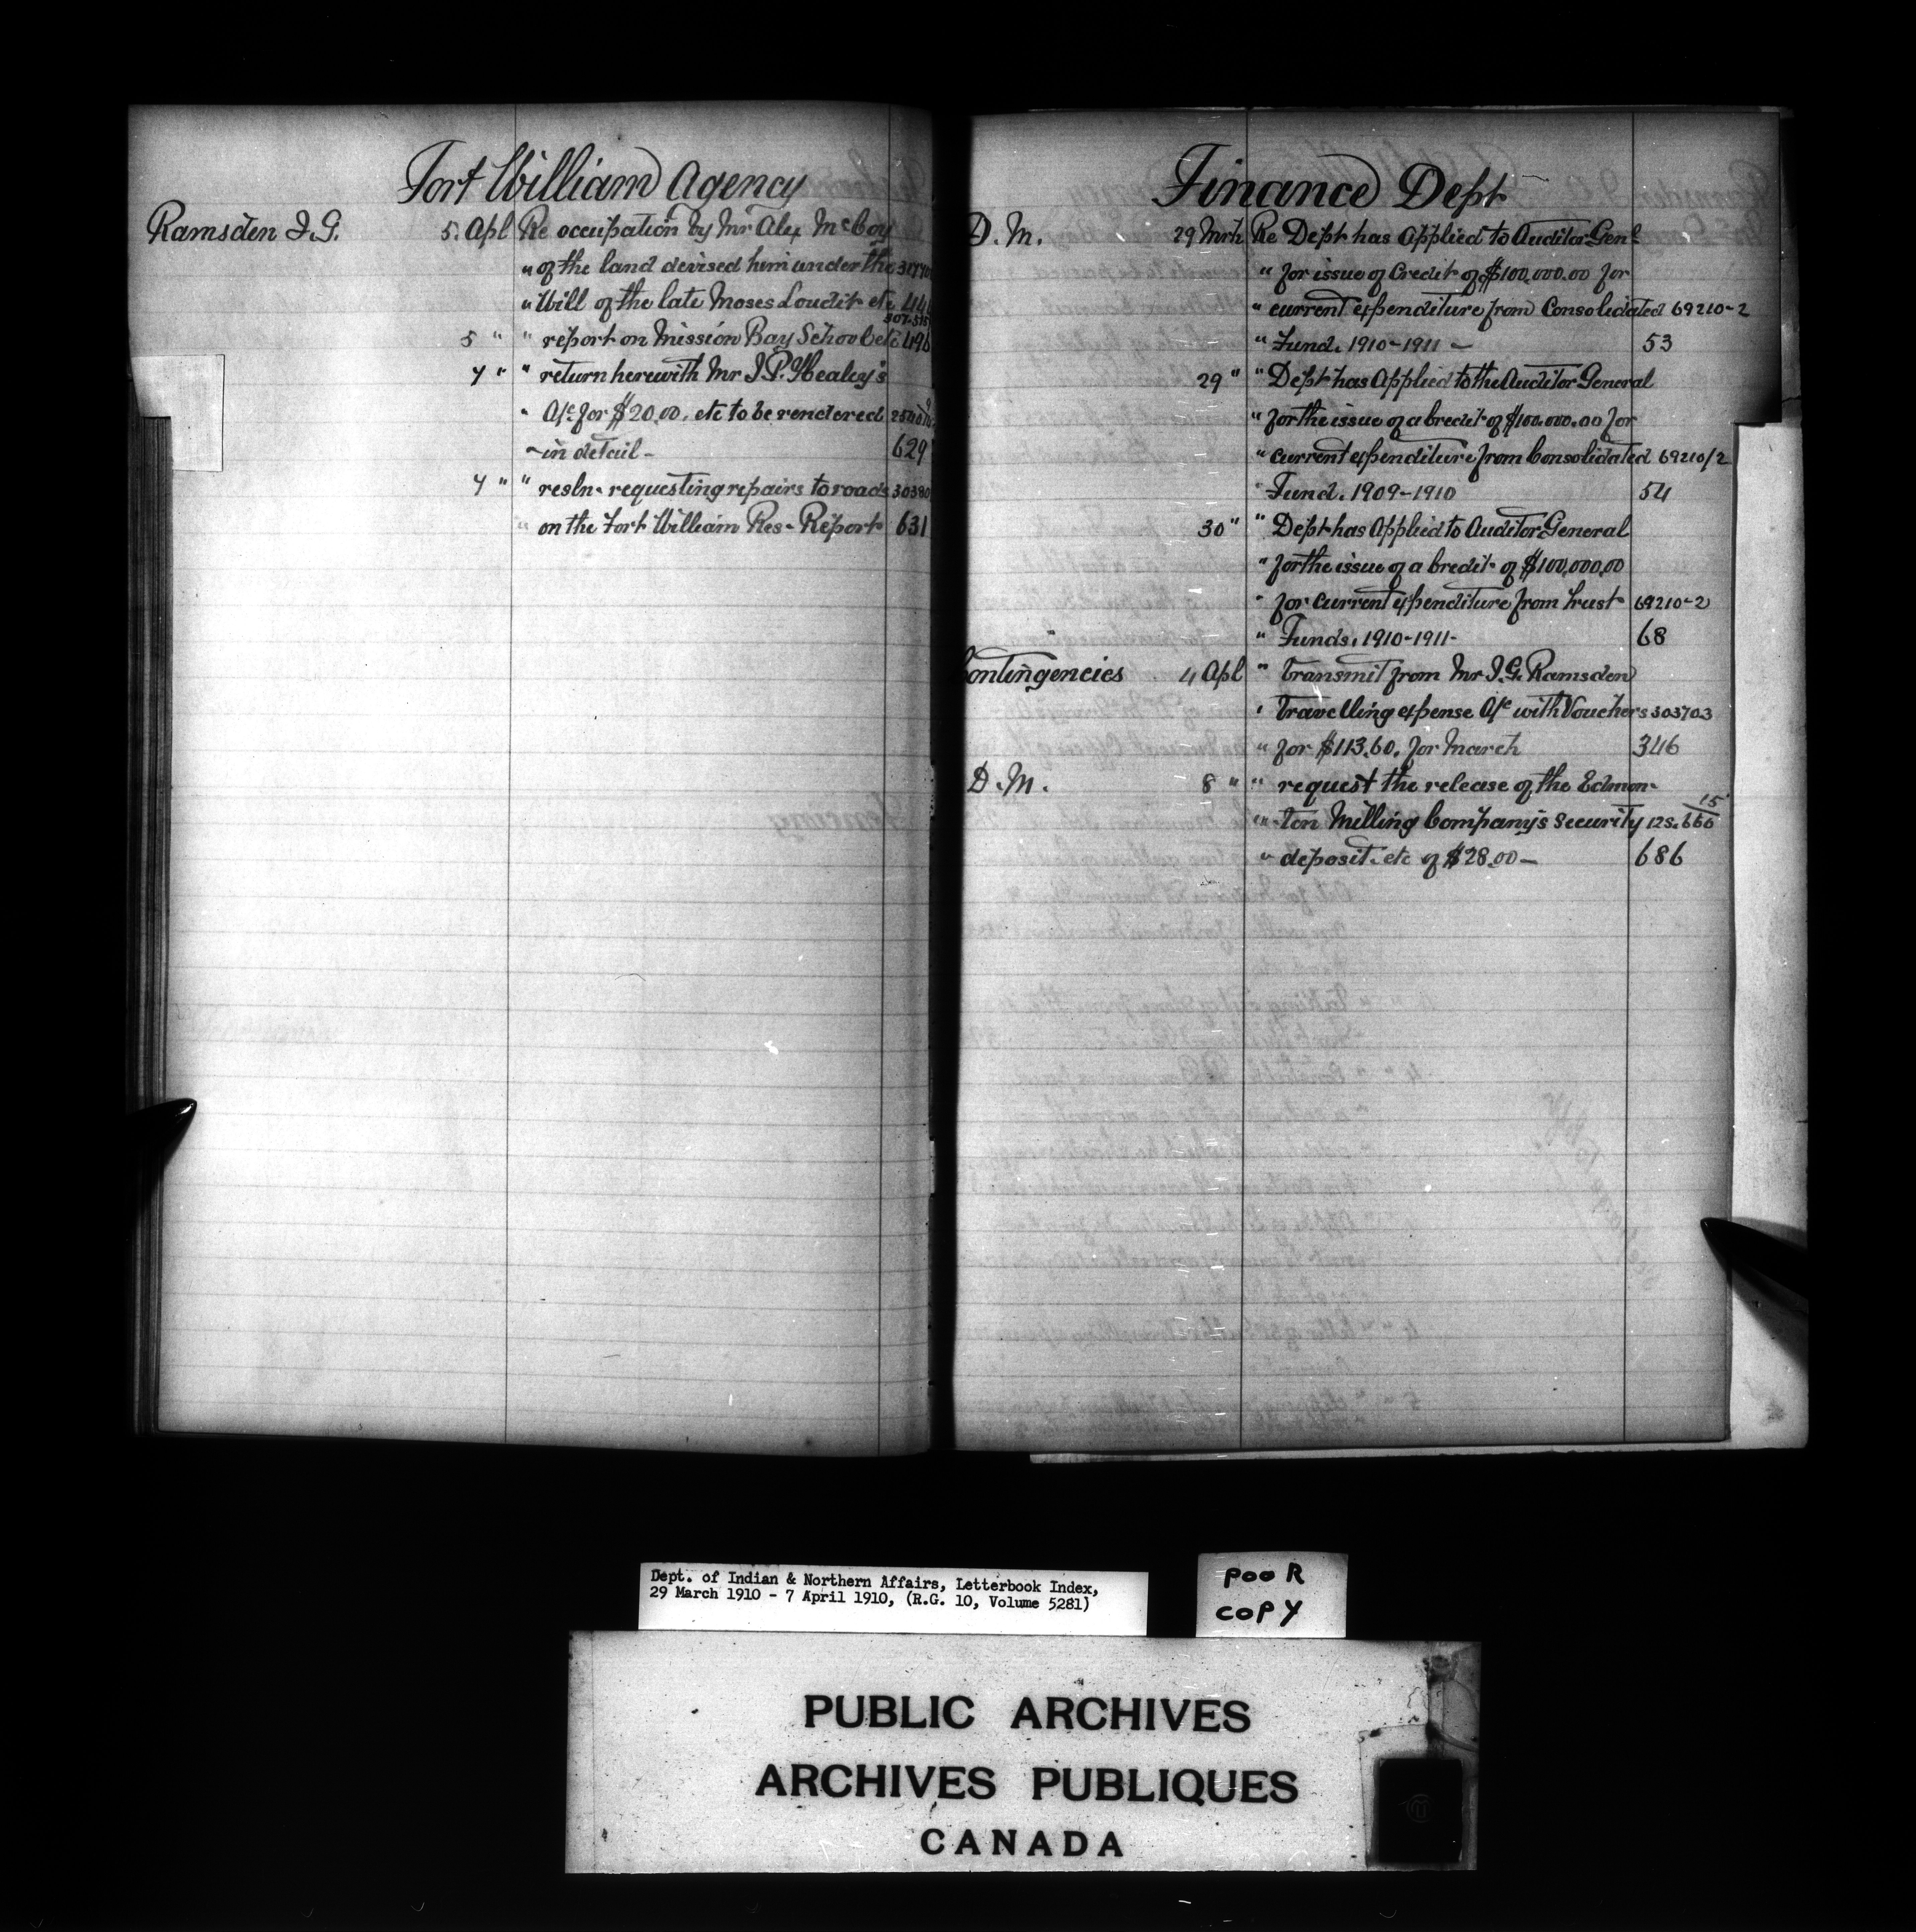 Fort William Agency
Ramsden J.G. 5. Apl Re occupation by Mr Alex McCoy
" of the land devised him under the
" Will of the late Moses Loudit etc 441
307-
5 " " report on Mission Bay School etc 496
7 " " return herewith Mr J.P. Healey's
" A/c for $20.00. etc to be rendered
~ in detail - 629
7 " " resln. requesting repairs to roads 30380
" on the Fort William Res - Report 631
Finance Dept
D.M. 29 Mrh Re Dept has Applied to Auditor Genl
" for issue of Credit of $100.000.00 for
" current expenditure from Consolidated 69210-2
" Fund. 1910-1911 - 53
29 " " Dept has Applied to the Auditor General
" for the issue of a Credit of $100.000.00 for
" current expenditure from Consolidated 69210/2
" Fund. 1909-1910 54
30 " " Dept has Applied to Auditor General
" for the issue of a Credit of $100,000.00
" for current expenditure from Trust 69210-2
" Funds. 1910-1911- 68
Contingencies 4 Apl " Transmit from Mr J.G. Ramsden
" Travelling expense A/c with Vouchers 303703
" for $113.60. for March 346
D.M. 8 " " request the release of the Edmon-
" -ton Milling Company's security 125.
15
" deposit. etc of $28.00 - 686
Dept. of Indian & Northern Affairs, Letterbook Index,
29 March 1910 - 7 April 1910, (R.G. 10, Volume 5281)
POOR
COPY
PUBLIC ARCHIVES
ARCHIVES PUBLIQUES
CANADA